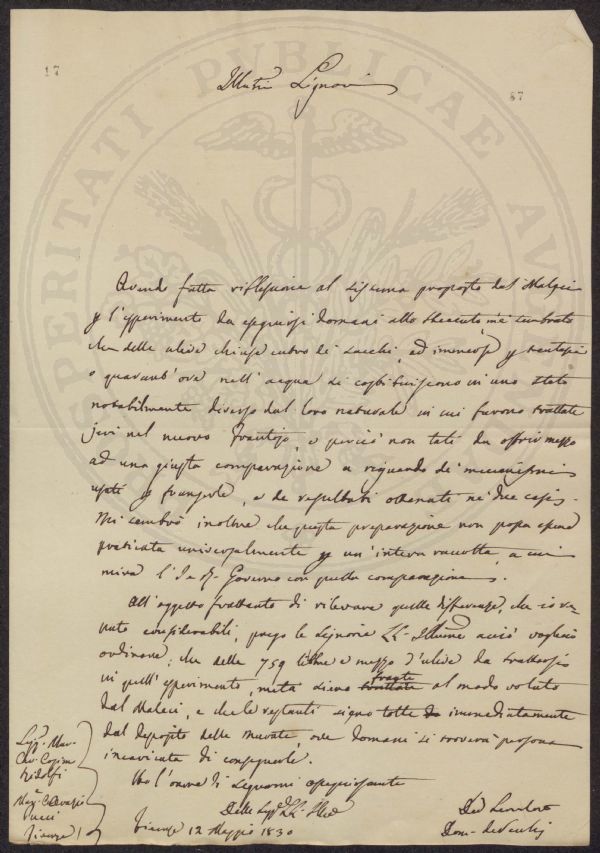 17
87
Illustri Signori
PROSPERITATI PVBLICAE AVGENDAE
Avendo fatta riflessione al sistema proposto dal Malesci
p l'esperimento da eseguirsi domani allo Steccuto mi è sembrato
che delle ulive chiuse entro di sacchi, ed immerse p trentasei
o quarant'ore nell'acqua si costituiscono in uno stato
notabilmente diverso dal loro naturale in cui furono trattate
jeri nel nuovo Frantojo, e perciò non tali da offrir mezzo
ad una giusta comparazione a riguardo de' meccanismi
usati p frangerle, e de resultati ottenuti ne' due casi.
Mi sembrò inoltre che questa preparazione non possa essere
praticata universalmente p un'intera raccolta, a cui
mira l'I. e R. Governo con quella comparazione.
All'oggetto frattanto di rilevare quelle differenze, che io re-
puto considerabili, prego le Signorie LL. Illme acciò vogliano
ordinare, che delle 759 libbre e mezzo d'ulive da trattarsi
in quell'esperimento, metà sieno frante al modo voluto
dal Malesci, e che le restanti sieno tolte immediatamente
dal deposito delle murate, ove domani si troverà persona
incaricata di consegnarle.
Ho l'onore di segnarmi ossequiosamente
Delle Sigrie LL. Illme
Firenze 12 Maggio 1830
Sigg. Mar.
Cav. Cosimo
Ridolfi
Mar. Cav.
Pucci
Firenze
Dev. Servitore
Dom.